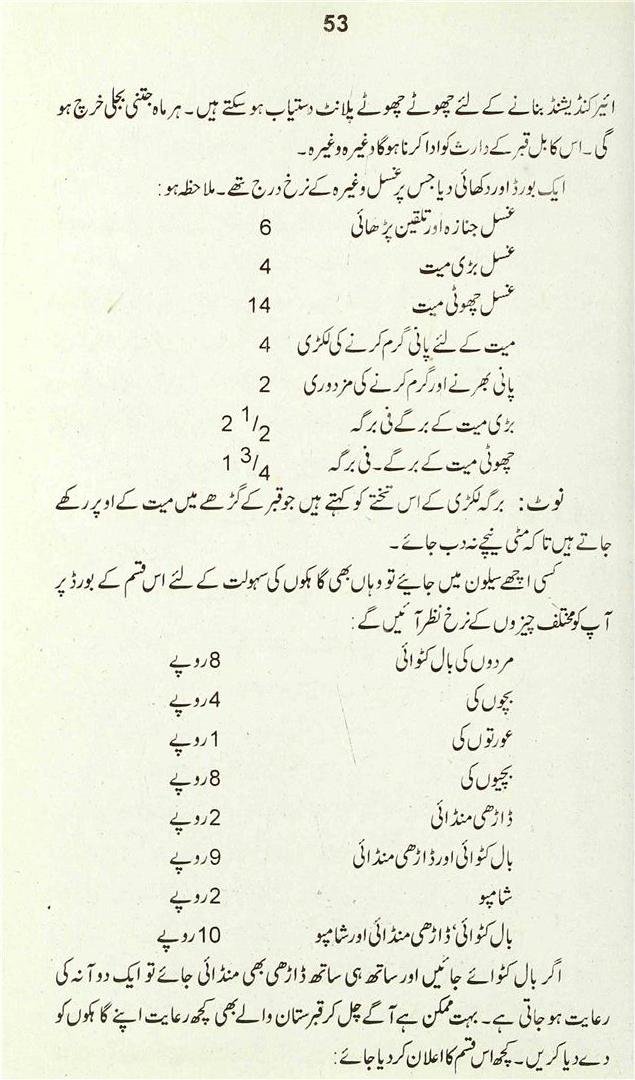 53
ائیر کنڈیشنڈ بنانے کے لئے چھوٹے چھوٹے پلانٹ دستیاب ہو سکتے ہیں۔ ہر ماہ جتنی بجلی خرچ ہو
گی۔ اس کا بل قبر کے وارث کو ادا کرنا ہوگا وغیرہ وغیرہ۔
ایک بورڈ اور دکھائی دیا جس پر غسل وغیرہ کے نرخ درج تھے۔ ملاحظہ ہو:
غسل جنازہ اور تلقین پڑھائی 6
غسل بڑی میت 4
غسل چھوٹی میت 14
میت کے لئے پانی گرم کرنے کی لکڑی 4
پانی بھرنے اور گرم کرنے کی مزدوری 2
بڑی میت کے برگے فی برگہ 2 1/2
چھوٹی میت کے برگے۔ فی برگہ 1 3/4
نوٹ: برگہ لکڑی کے اس تختے کو کہتے ہیں جو قبر کے گڑھے میں میت کے اوپر رکھے
جاتے ہیں تاکہ مٹی نیچے نہ دب جائے۔
کسی اچھے سیلون میں جایئے تو وہاں بھی گاہکوں کی سہولت کے لئے اس قسم کے بورڈ پر
آپ کو مختلف چیزوں کے نرخ نظر آئیں گے:
مردوں کی بال کٹوائی 8 روپے
بچوں کی 4 روپے
عورتوں کی 1 روپے
بچیوں کی 8 روپے
ڈاڑھی منڈائی 2 روپے
بال کٹوائی اور ڈاڑھی منڈائی 9 روپے
شامپو 2 روپے
بال کٹوائی‘ ڈاڑھی منڈائی اور شامپو 10 روپے
اگر بال کٹوائے جائیں اور ساتھ ہی ساتھ ڈاڑھی بھی منڈائی جائے تو ایک دو آنہ کی
رعایت ہو جاتی ہے۔ بہت ممکن ہے آگے چل کر قبرستان والے بھی کچھ رعایت اپنے گاہکوں کو
دے دیا کریں۔ کچھ اس قسم کا اعلان کر دیا جائے: